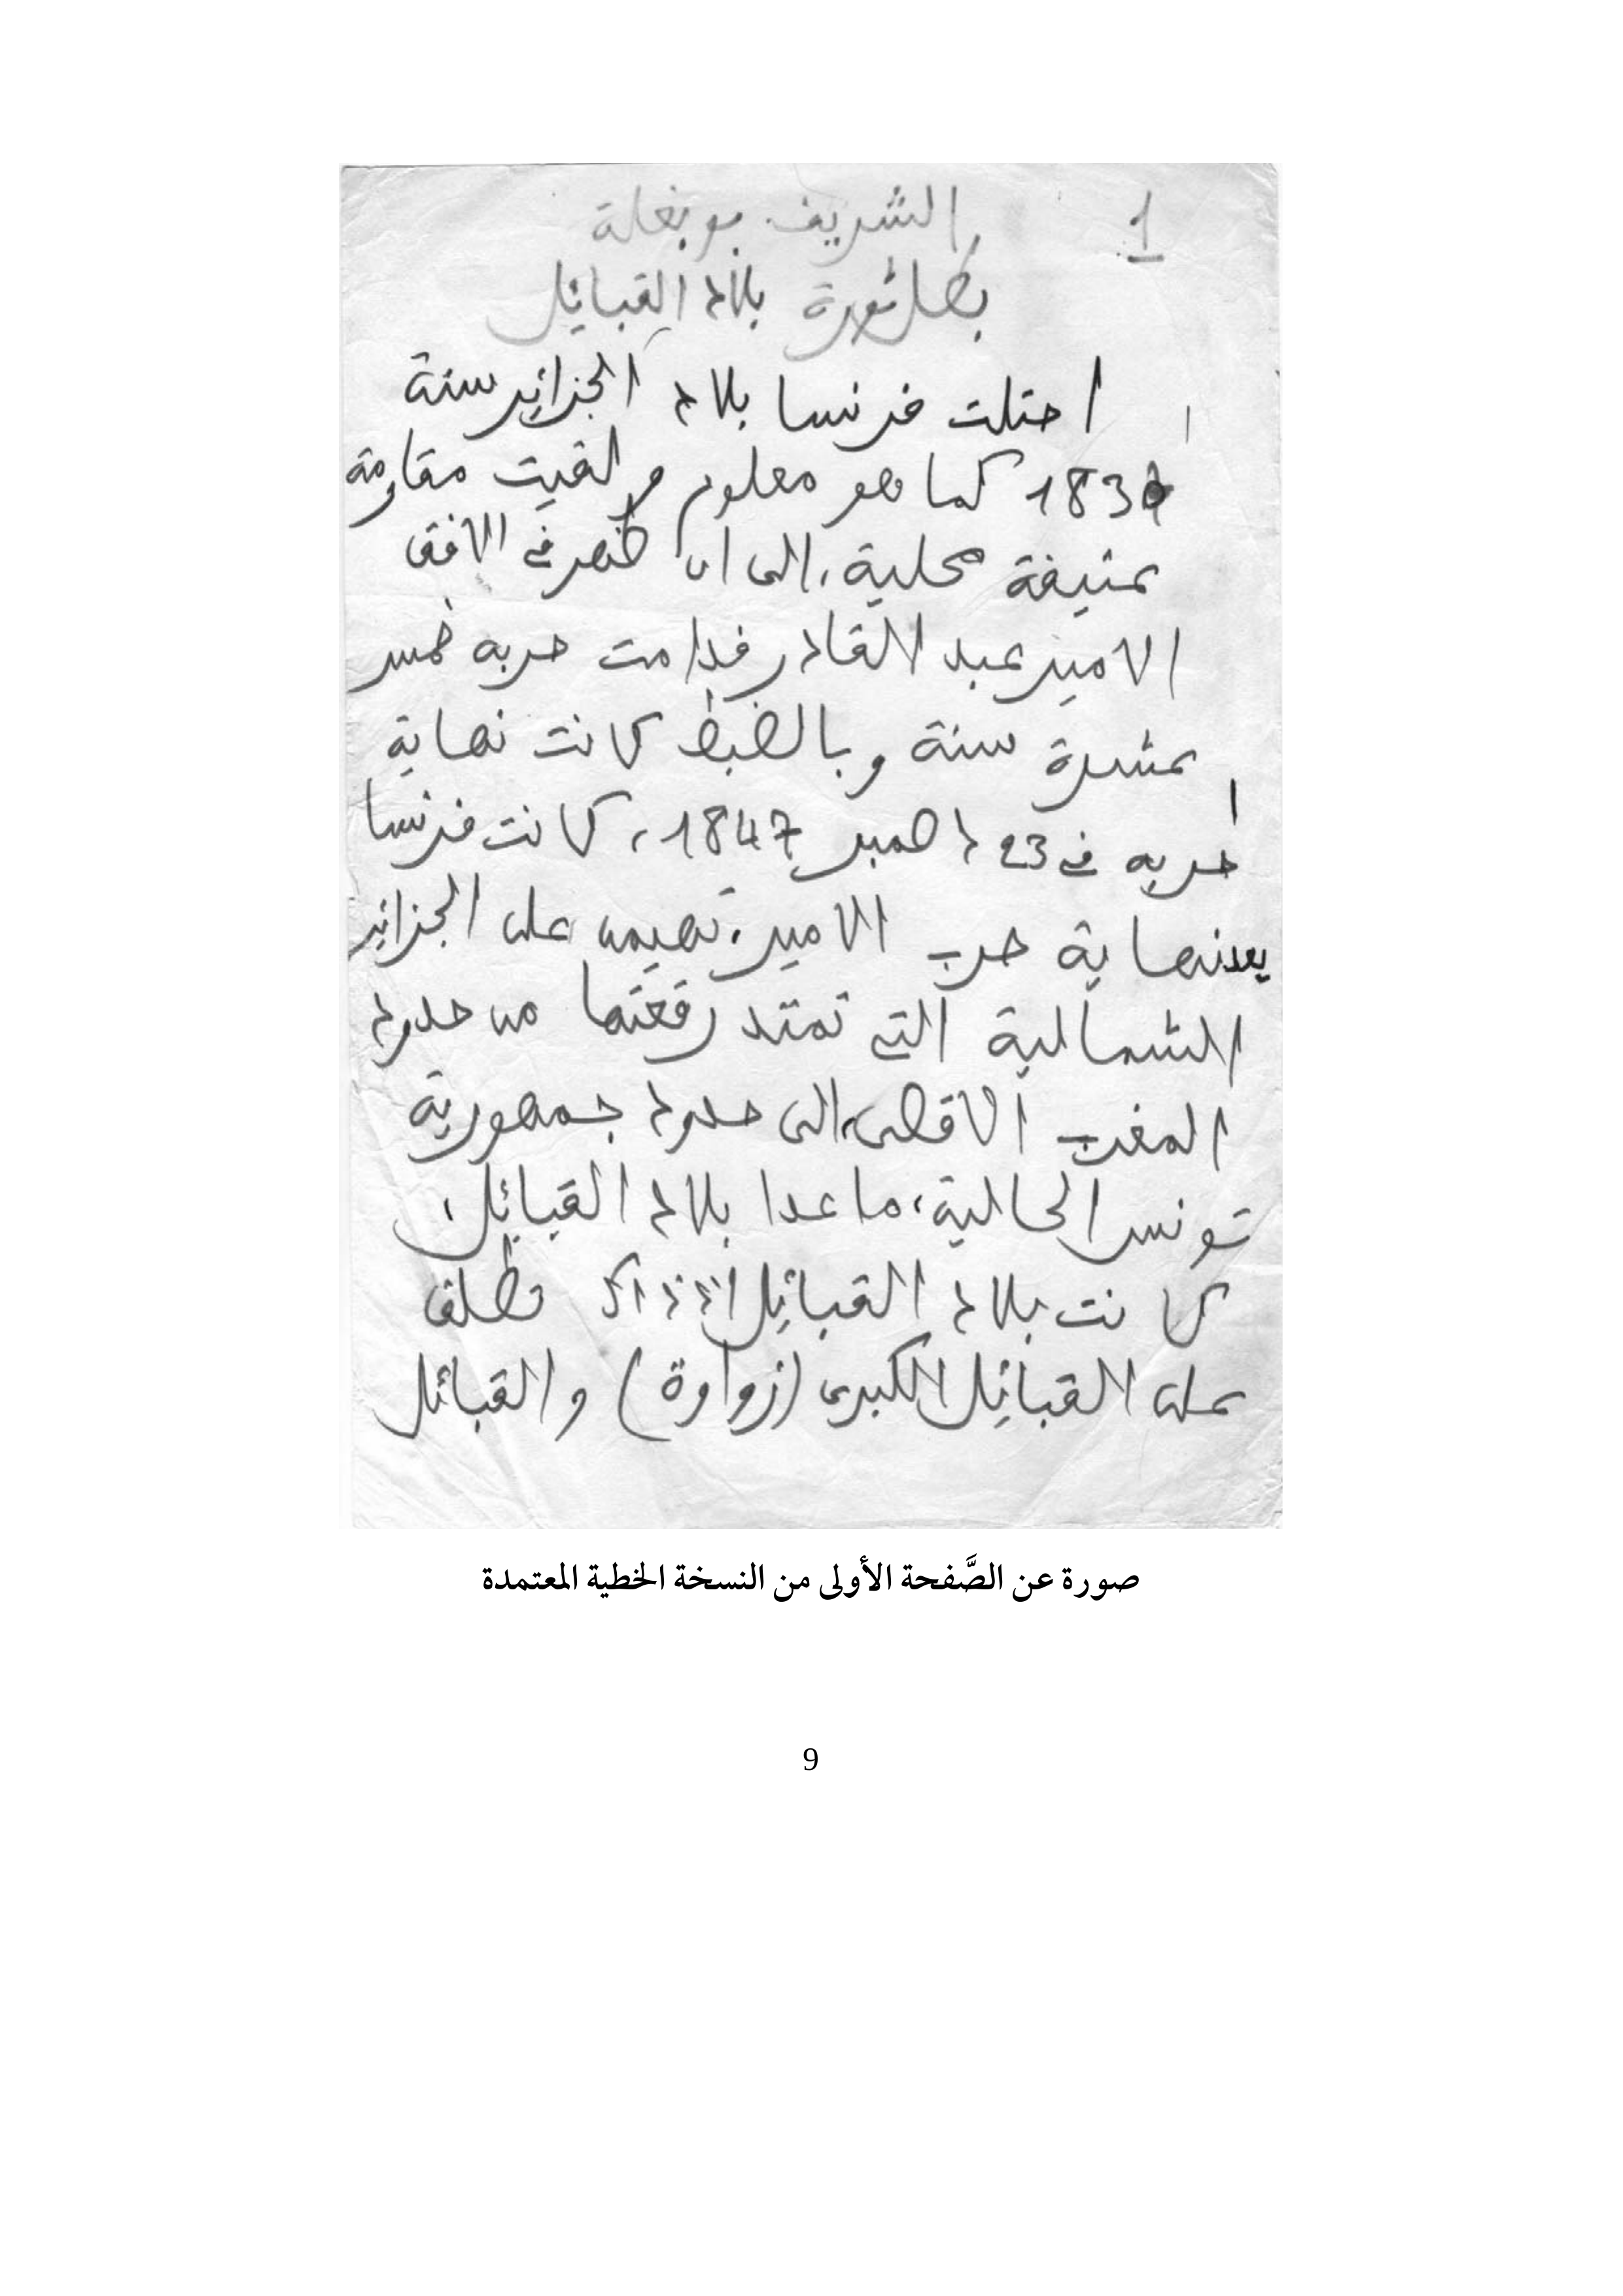 1
الشريف بوبغلة
بطل ثورة بلاد القبائل
احتلت فرنسا بلاد الجزائر سنة
1830 كما هو معلوم ولقيت مقاومة
عنيفة محلية، الى ان ظهر في الافق
الامير عبد القادر فدامت حربه خمس
عشرة سنة وبالضبط كانت نهاية
حربه في 23 دصمبر 1847، كانت فرنسا
بعد نهاية حرب الامير، تهيمن على الجزائر
الشمالية التي تمتد رقعتها من حدود
المغرب الاقصى، الى حدود جمهورية
تونس الحالية، ما عدا بلاد القبائل،
كانت بلاد القبائل آنذاك تطلق
على القبائل الكبرى (زواوة) والقبائل
صورة عن الصَّفحة الأولى من النسخة الخطية المعتمدة
9